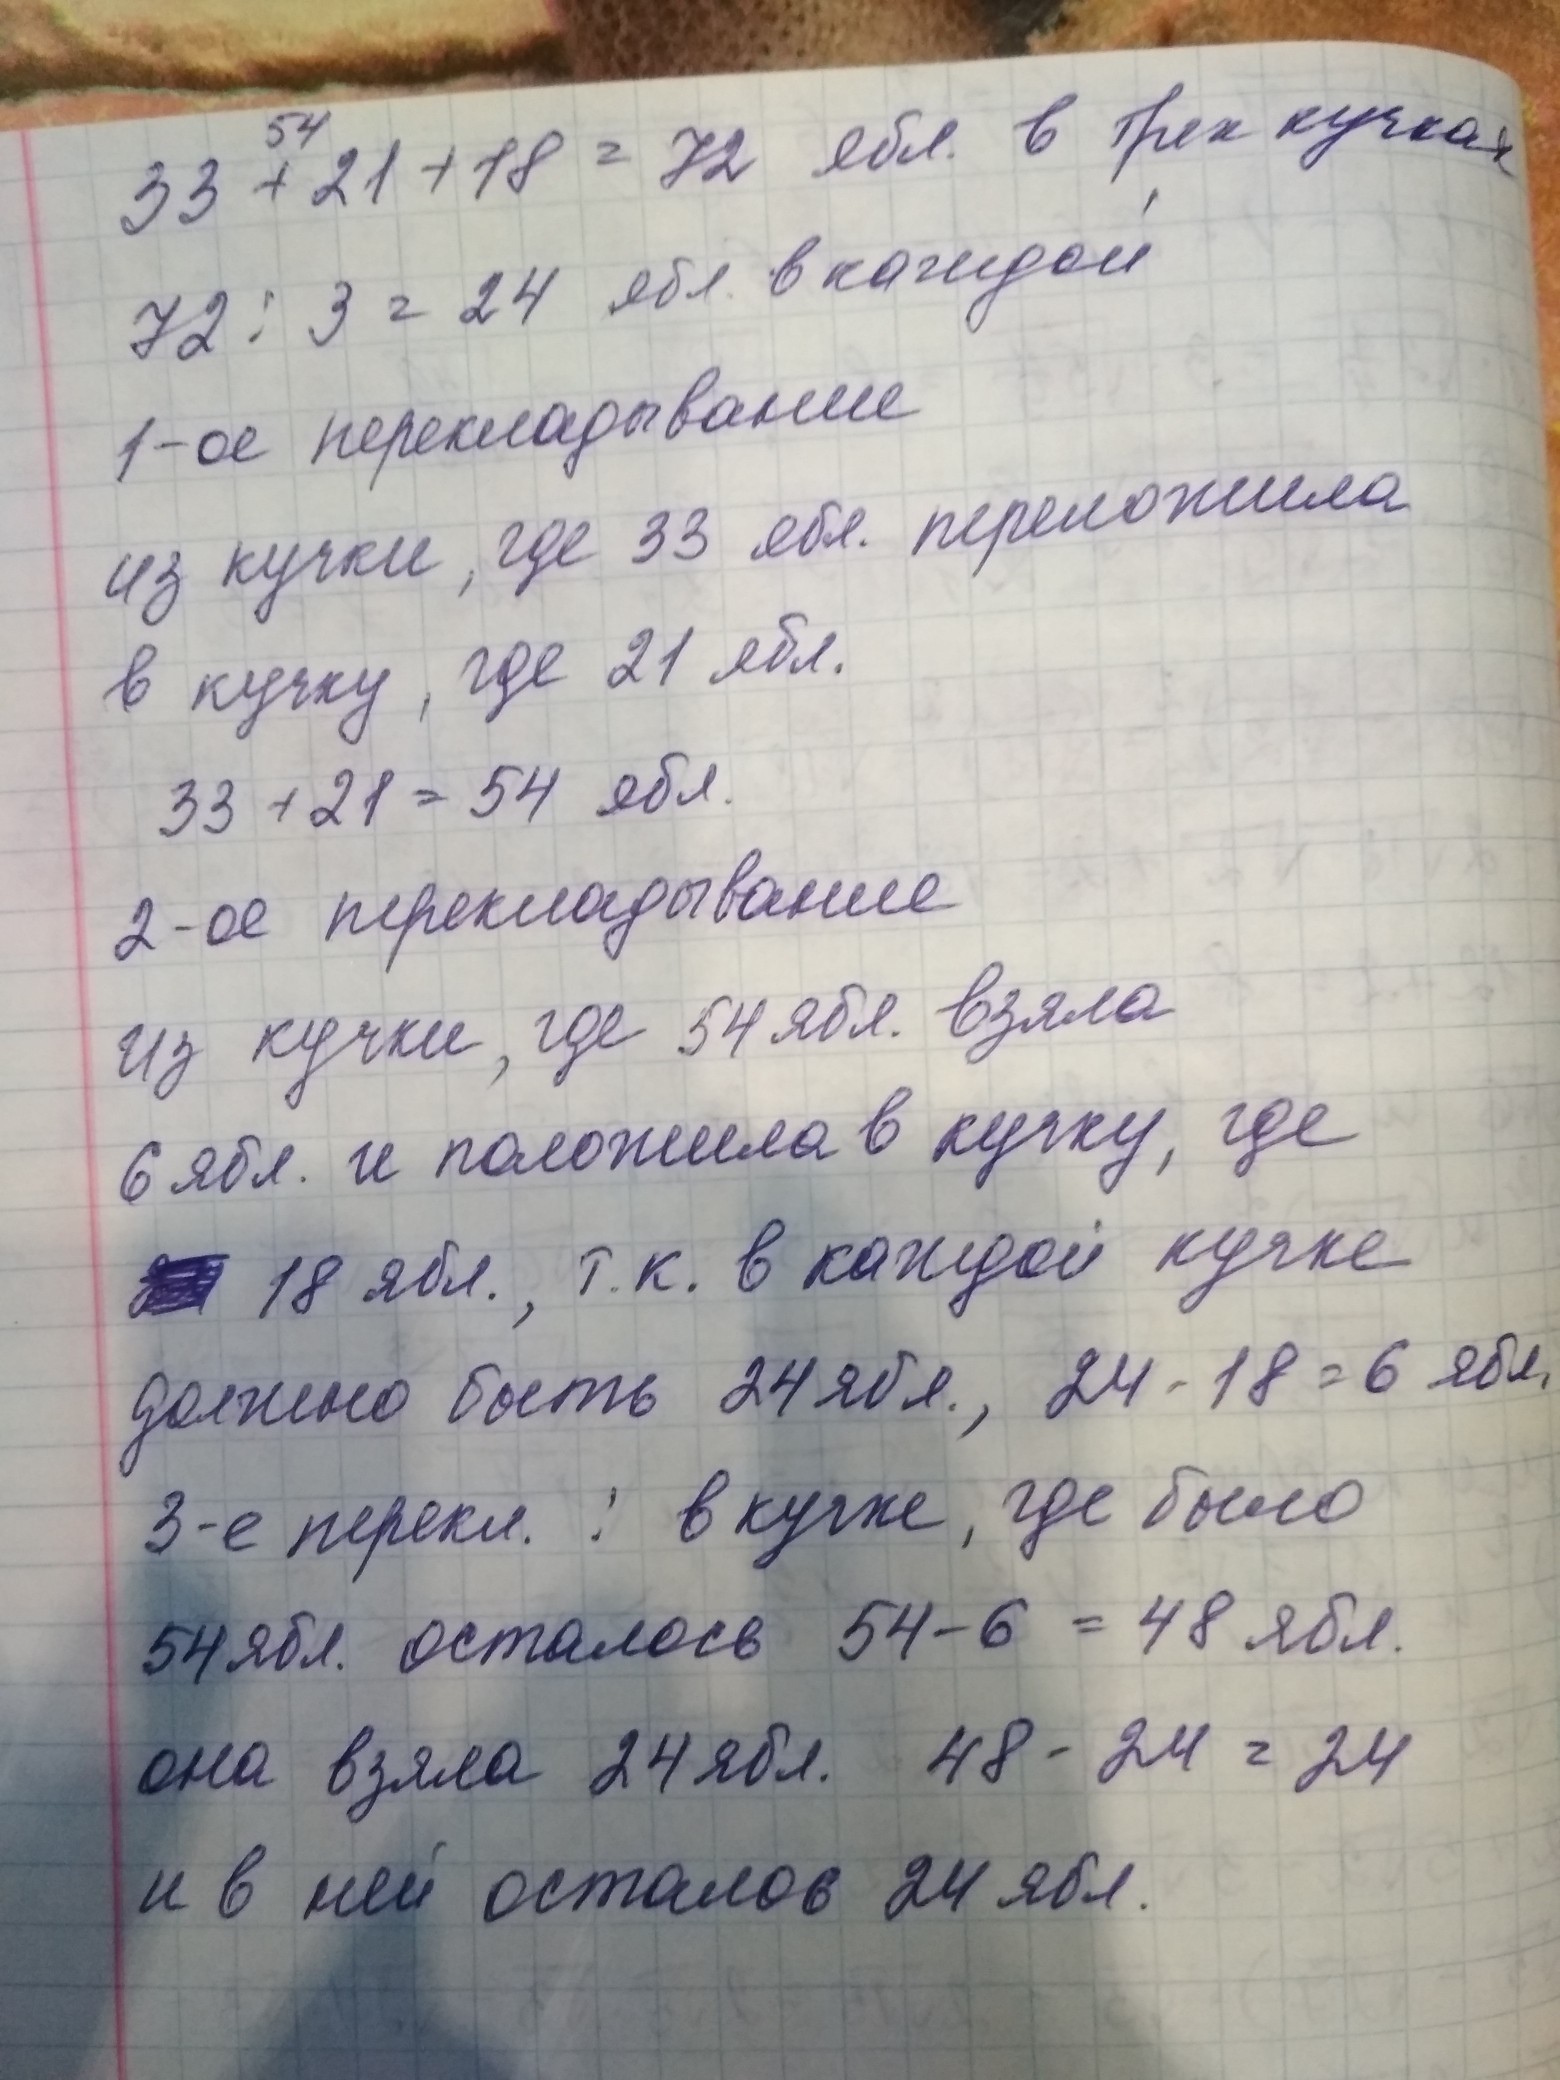 54
33 + 21 + 18 = 72 ябл. в трех кучках
72 : 3 = 24 ябл. в каждой
1-ое перекладывание
из кучки, где 33 ябл. переложила
в кучку, где 21 ябл.
33 + 21 = 54 ябл.
2-ое перекладывание
из кучки, где 54 ябл. взяла
6 ябл. и положила в кучку, где
18 ябл., т.к. в каждой кучке
должно быть 24 ябл., 24 - 18 = 6 ябл.
3-е перекл. : в кучке, где было
54 ябл. осталось 54 - 6 = 48 ябл.
она взяла 24 ябл. 48 - 24 = 24
и в ней осталов 24 ябл.